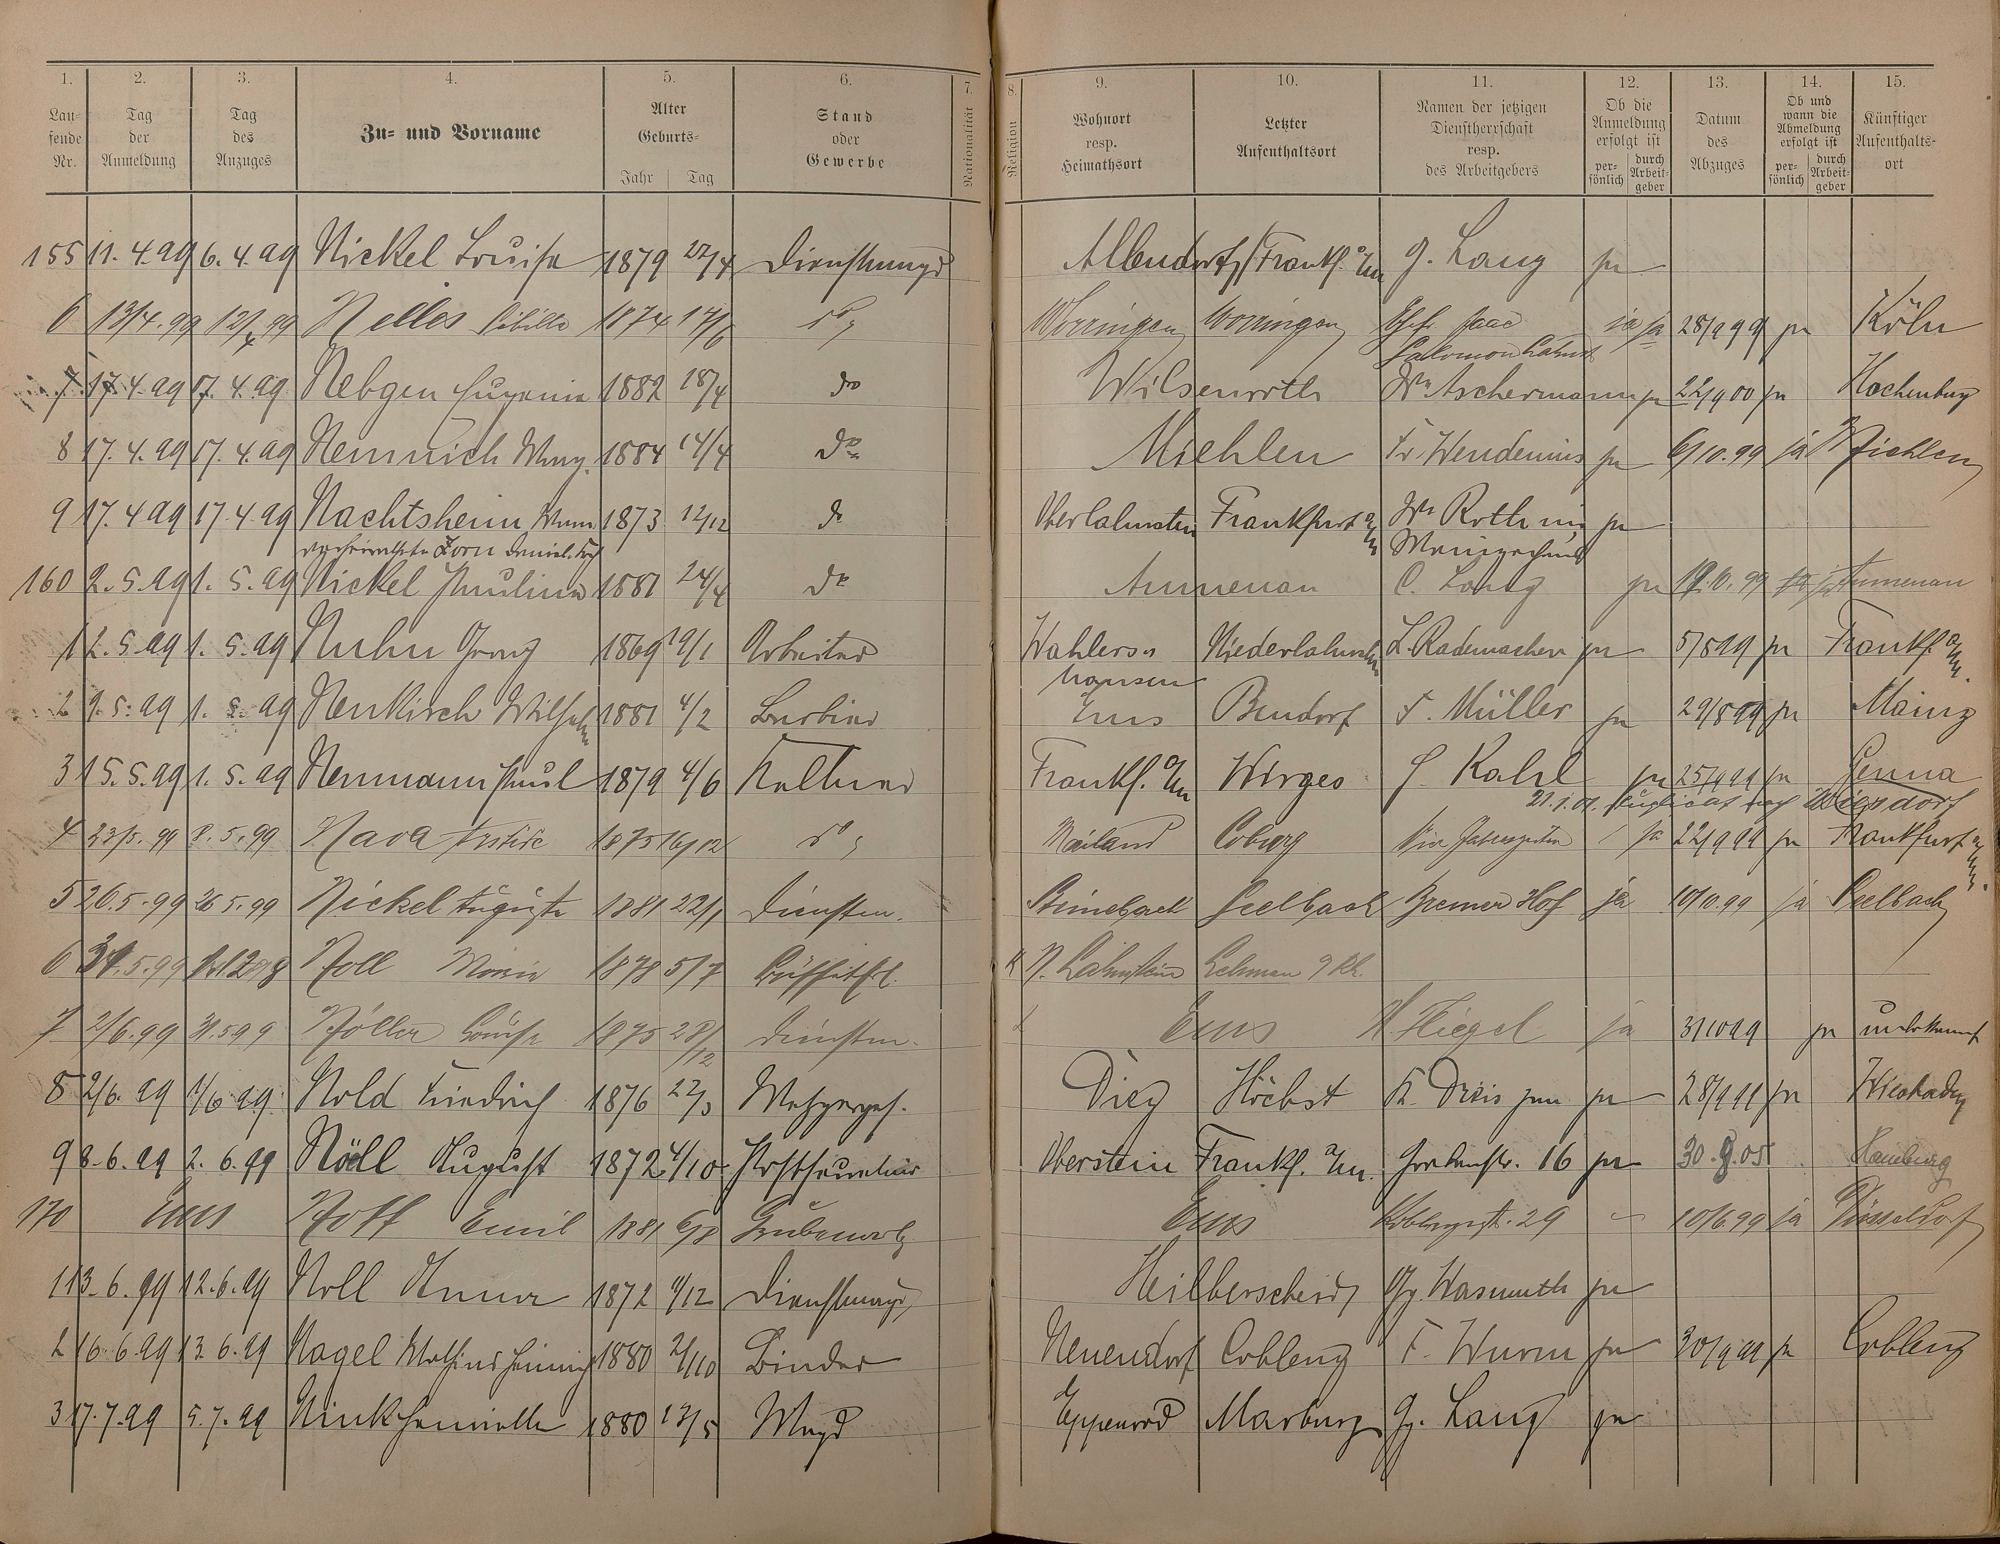 1. 2. 3. 4. 5. 6. 7. 8. 9. 10. 11. 12. 13. 14. 15.
Lau-
fende
Nr.
Tag
der
Anmeldung
Tag
des
Anzuges
Zu- und Vorname
Alter
Geburts-
Jahr Tag
Stand
oder
Gewerbe
Nationalität
Religion
Wohnort
resp.
Heimathsort
Letzter
Aufenthaltsort
Namen der jetzigen
Dienstherrschaft
resp.
des Arbeitgebers
Ob die
Anmeldung
erfolgt ist
per-
sönlich
durch
Arbeit-
geber
Datum
des
Abzuges
Ob und
wann die
Abmeldung
erfolgt ist
per-
sönlich
durch
Arbeit-
geber
Künftiger
Aufenthalts-
ort
155 11. 4. 99 6. 4. 99 Nickel Louise 1879 22/4 Dienstmagd Allendorf Frankf. a/m G. Lang ja
6 13/4. 99 12/4 99 Nelles Sibilla 1874 17/6 do Worringen Worringen Isaac ja ja 28/9 99 ja Köln
Salomon
7 17. 4. 99 17. 4. 99 Nebgen 1882 18/4 do Wilsenroth Wn Aschermann ja 22/9 00 ja Hachenburg
8 17. 4. 99 17. 4. 99 1884 14/4 do Miehlen Fr. Wendenius ja 6/10. 99 ja Miehlen
9 17. 4 99 17. 4. 99 Nachtsheim 1873 12/12 do Oberlahnstein Frankfurt a/m Wn Roth ja
Zorn
160 2. 5. 99 1. 5. 99 Nickel Pauline 1881 24/4 do Aumenau C. Lang ja 19. 6. 99 Aumenau
1 2. 5. 99 1. 5. 99 Nuhn Georg 1869 19/1 Arbeiter Wahlers- Niederlahnstein L. Rademacher ja 5/8 99 ja Frankf. a/m.
hausen
2 9. 5. 99 1. 5. 99 Neukirch Wilhelm 1881 4/2 Barbier Ems Bendorf F. Müller ja 29/8 99 ja Mainz
3 15. 5. 99 1. 5. 99 Neumann Paul 1879 4/6 Kellner Frankf. a/m Wirges J. Kahl ja 25/9 99 ja Genua
21. 1. 01.
4 23/5. 99 8. 5. 99 Nava 1875 16/12 do Mailand Coburg ja 22/9 99 ja Frankfurt a/m.
5 26. 5. 99 26 5. 99 Nickel Auguste 1881 22/1 Dienstm. Seelbach Bremer Hof ja 10/10. 99 ja Seelbach
6 31. 5. 99 Noll Maria 1878 5/7 Büffetfrl. K N. Lahnstein
7 2/6. 99 31. 5 99 Nöller Louise 1875 28/12 Dienstm. Ems H. Flegel ja 31 10 99 ja unbekannt
8 2/6. 99 1/6 99. Nold Friedrich 1876 22/3 Metzgerges. Diez Höchst K. Dreis jun ja 28/9 99 ja Wiesbaden
9 8. 6. 99 2. 6. 99 Nöll August 1872 4/10. Oberstein Frankf. a/m. Grabenstr. 16 ja 30. 9. 05 Hamburg
170 Ems Noff Emil 1881 6/8 Grubenarb. Ems Koblenzerstr. 29 10/6. 99 ja Düsseldorf
1 13. 6. 99 12. 6. 99 Noll Anna 1872 4/12 Dienstmagd Heilberscheid Gg. Wasmuth ja
2 16. 6. 99 13. 6. 99 Nagel Mathias Heinrich 1880 21/10 Binder Neuendorf Coblenz F. Wurm ja 30/9 99 ja Coblenz
3 17. 7. 99 5. 7. 99 Nink Henriette 1880 13/5 Magd Eppenrod Marburg Gg. Lang ja